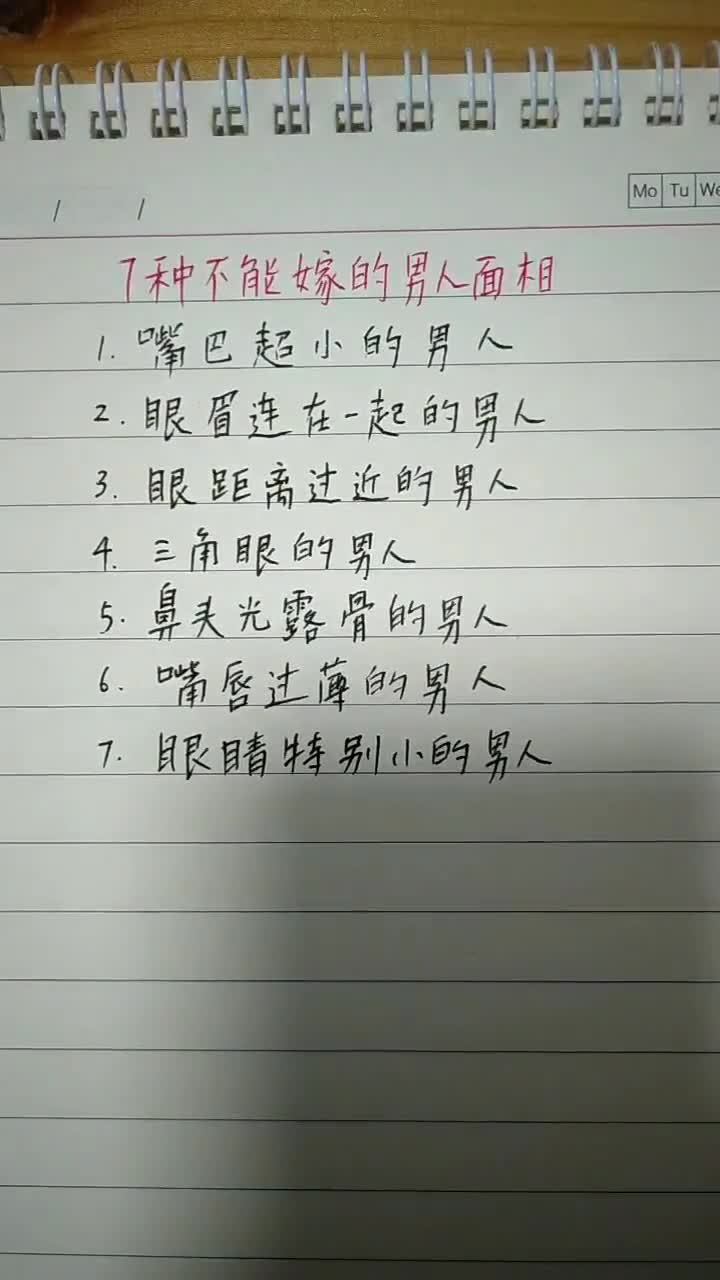 / /
Mo Tu We
7种不能嫁的男人面相
1. 嘴巴超小的男人
2. 眼眉连在一起的男人
3. 眼距离过近的男人
4. 三角眼的男人
5. 鼻头光露骨的男人
6. 嘴唇过薄的男人
7. 眼睛特别小的男人